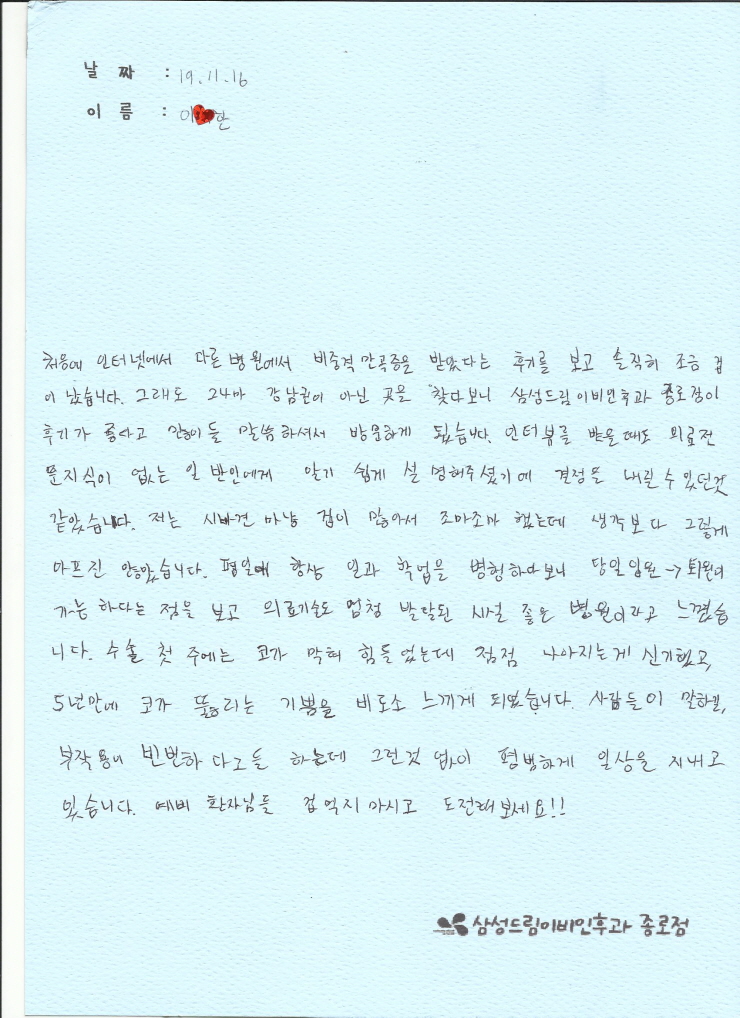 날 짜 : 19.11.16
이 름 : 이 한
처음에 인터넷에서 다른 병원에서 비중격만곡증을 받았다는 후기를 보고 솔직히 조금 겁
이 났습니다. 그래도 강남권이 아닌 곳을 찾다보니 삼성드림이비인후과 종로점이
후기가 좋다고 많이들 말씀하셔서 방문하게 됬습니다. 인터뷰를 받을때도 의료전
문지식이 없는 일반인에게 알기 쉽게 설명해주셨기에 결정을 내릴 수 있던것
같았습니다. 저는 마냥 겁이 많아서 조마조마 했는데 생각보다 그렇게
아프진 않았습니다. 평일에 항상 일과 학업을 병행하다보니 당일입원→퇴원이
가능 하다는 점을 보고 의료기술도 엄청 발달된 시설 좋은 병원이라고 느꼈습
니다. 수술 첫 주에는 코가 막혀 힘들었는데 점점 나아지는게 신기했고,
5년만에 코가 뚫리는 기쁨을 비로소 느끼게 되었습니다. 사람들이 말하길,
부작용이 빈번하다고들 하는데 그런것 없이 평범하게 일상을 지내고
있습니다. 예비 환자님들 겁먹지 마시고 도전해보세요!!
삼성드림이비인후과 종로점